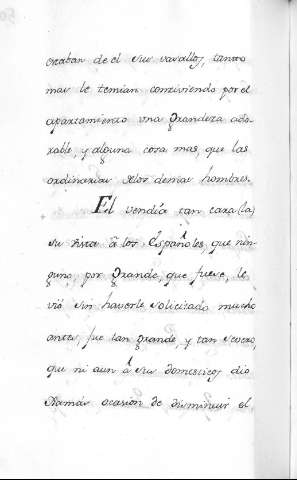 estaban de el sus vasallos, tanto
mas le temian concibiendo por el
apartamiento una grandeza ado-
rable, y alguna cosa mas, que las
ordinarias de los demas hombres.
El vendía tan cara (la)
su vista â los Españoles, que nin-
guno, por grande, que fuese, le
vió sin haverle solicitado mucho
antes, fue tan grande y tan severo,
que ni aun â sus domesticos dio
Jamás ocasion de disminuir el